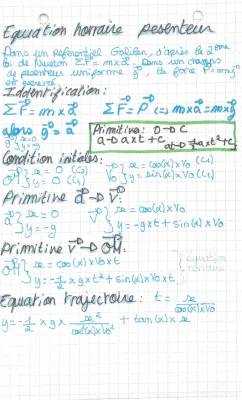 Equation horraire pesenteur
Dans un referentiel Galileen, d'après la 2ème
loi de Newton ΣF = m x a. Dans un champs
de pesenteur uniforme g, de force P = mxg
Iddentification:
ΣF = m x a ΣF = P (=) mxa = mxg
alors g = a
Primitive: 0 → C
a → axt + C
Condition initiales:
OM { x = 0 (C3) y = 0 (C4) V0 { x = cos(α)xV0 (C1) y = sin(α)xV0 (C2)
Primitive a → V:
a { x = 0 y = -g V { x = cos(α)xV0 y = -gxt + sin(α)xV0
Primitive V → OM:
OM { x = cos(α)xV0xt y = -1/2 x gxt² + sin(α)xV0xt } equation horraire
Equation trajectoire: t = x / cos(α)xV0
y = -1/2 x g x x² / cos²(α)xV0² + tan(α) x x